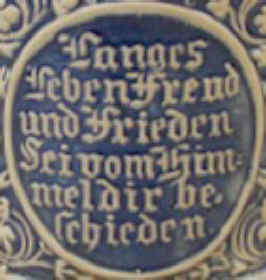 Langes
Leben Freud
und Frieden
Sei vom Him-
mel dir be-
schieden.